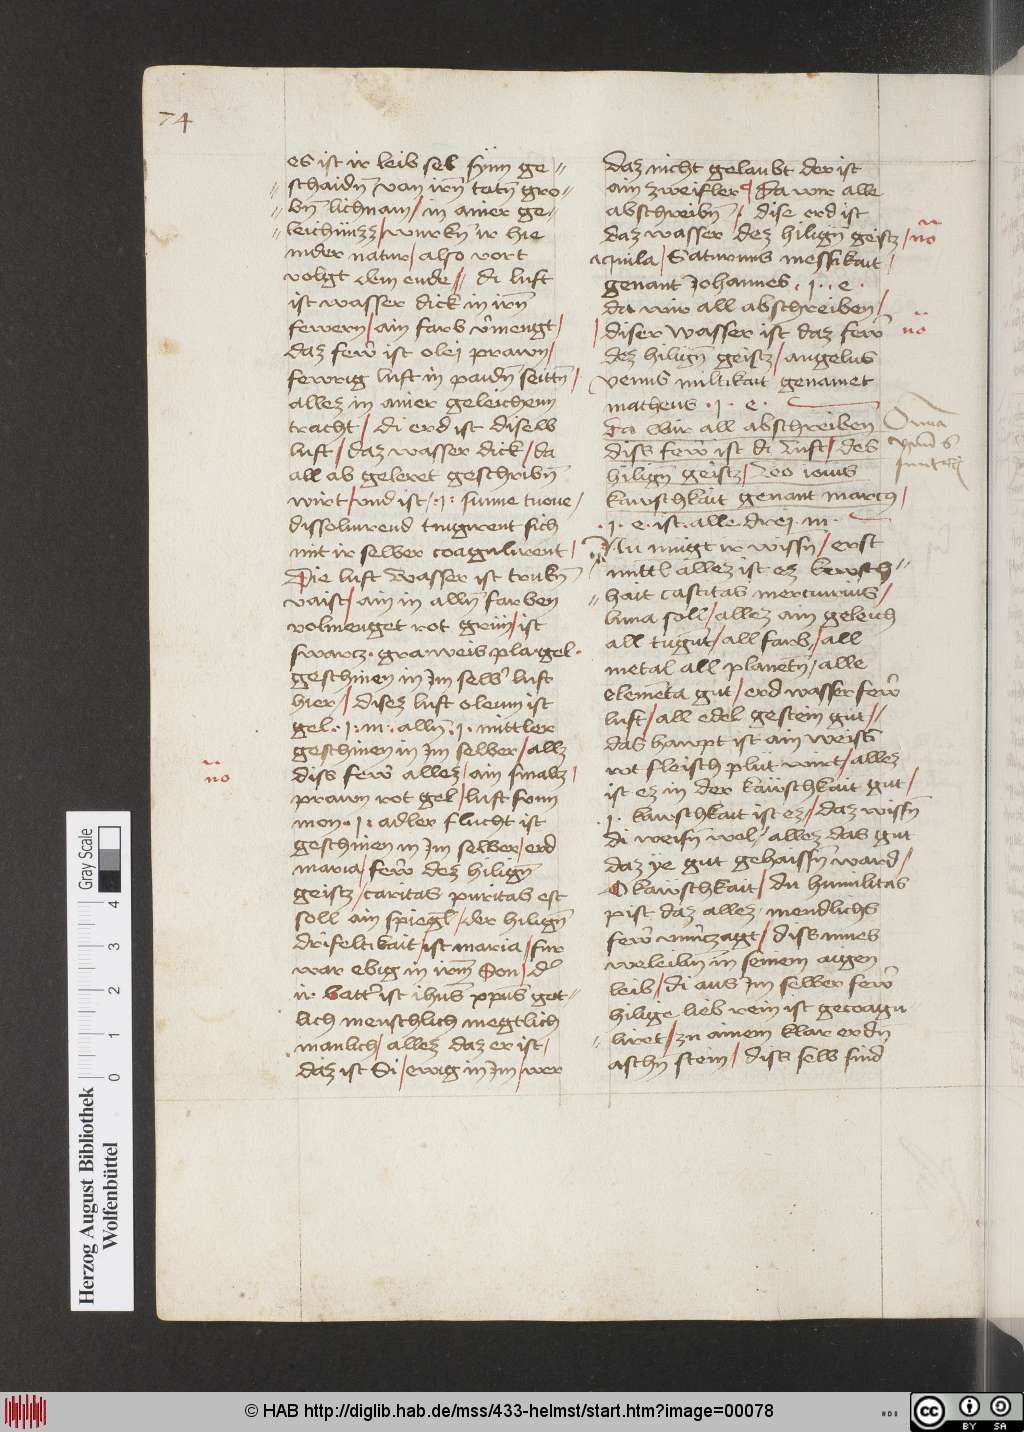 74
es ist ir leib sel synn ge„
schaidn̄ / van irn̄ totn̄ gro„
bn̄ lichnam / in ainer ge„
leichnüzz / wurkn̄ ir hie
inder natur / also vort
volgt dem ende // di luft
ist wasser dick in irn̄
fewern / ain farb v̄mengt /
daz few̄ ist olei prawn /
fewrig luft in paidn̄ seittn̄ /
allez in ainer geleichenn
tracht / di erd ist diselb
luft / daz wasser dick / da
all ab geleret geschribn̄
wirt / vnd ist /
dissoluirend tingirent sich
mit ir selber coagulirent /
Die luft wasser ist trukn̄
vaist / ain in alln̄ farben
volmenget rot grün / ist
swartz · gra · weis pla · gel ·
geschinen in Im selb̄ luft
hier / disez luft oleum ist
gel · I · m · alln̄ · I · mittler
geschinen in Im selber / allz
diss few̄ allez / ain smaltz /
no
prawn rot gel / luft sunn
mon · I : adler flucht ist
geschinen in Im selber / erd
maria / few̄ dez hilign̄
geistz / caritas puritas est
soll ain spiegl / der hilign̄
drifeltikait / ist maria / fur
war ebig in irm̄ Son / d̄
ir vatt̄ ist ih̄us xp̄us got„
lich menschlich megtlich
manlich / allez daz er ist /
daz ist Si / ewig in Im / wer
daz nicht gelaubt der ist
ain zweifler / Da wir alle
abschreibn̄ / dise erd ist
daz wasser dez hilign̄ geistz /
no
aquila / Saturnus messikait /
genant Johannes · I · e ·
da wir all abschreiben /
/ diser wasser ist daz few̄
no
dez hilign̄ geistz / angelus
venus miltikait genannet
matheus · I · e ·
Da wir all abschreiben
diss few̄ ist di luft / des
hilign̄ geistz / Leo iouis
kawschkait genant marcus /
· I · e · ist · alle · drei · m ·
Nu mügt ir wissn̄ / erst
mittl allez ist ez kewsch„
hait castitas mercurius /
luna soll / allez ain geleich
all tugnt / all farb / all
metal all planetn̄ / alle
elemēta gut / erd wasser few̄
luft / all edel gestein gut //
das hawpt ist ain weiss
rot fleisch plüt wirt / allez
ist ez in der kawschkait gut /
· I · kawschkait ist ez / daz wissn̄
di weisn̄ wol / allez das gut
daz ye gut gehaissn̄ ward /
O kawschkait / du humilitas
pist daz allez mendlichs
few̄ vnu̅zagt / diss mues
in seinem aigen
leib / di aus Im selber few̄
hilige lieb rein ist gecoagu
liret / zu ainem klar erdn̄
aschn̄ stein / diss selb sind
Herzog August Bibliothek
Wolfenbüttel
Gray Scale
0 1 2 3 4
© HAB http://diglib.hab.de/mss/433-helmst/start.htm?image=00078
HDB
cc BY SA